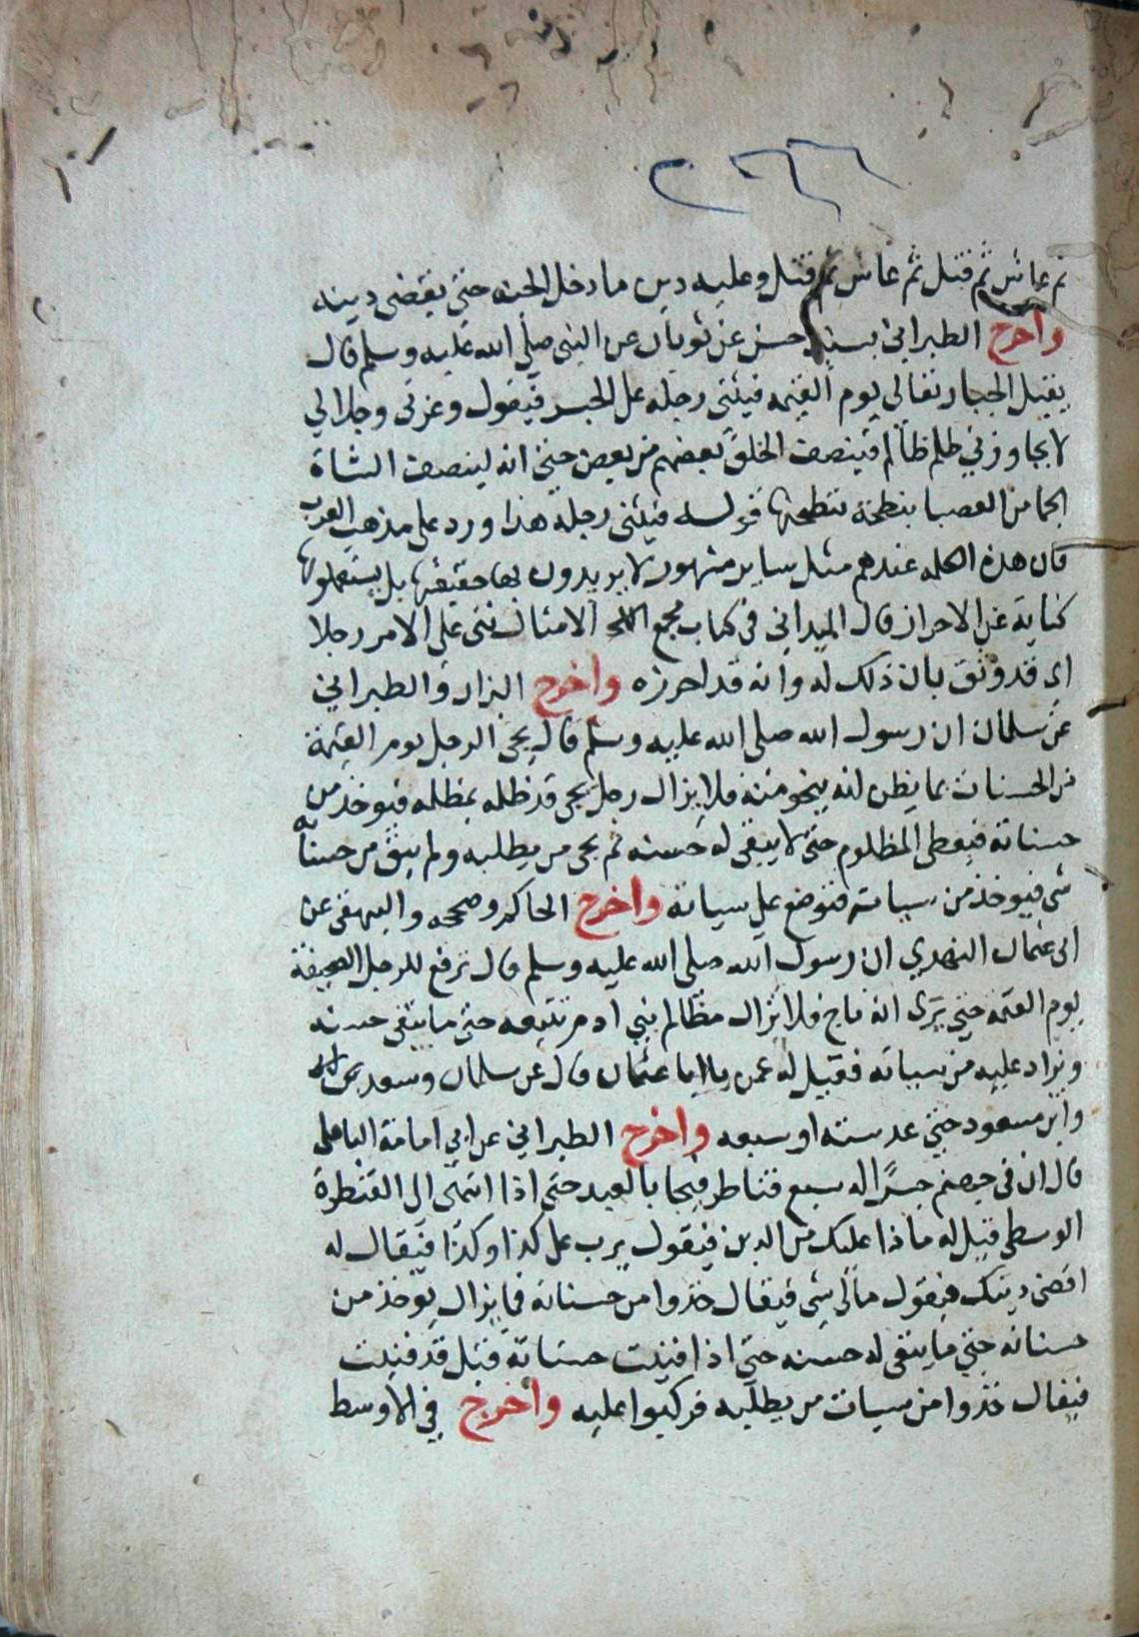 ٢٦٦
ثم عاش ثم قتل ثم عاش ثم قتل وعليه دين ما دخل الجنة حتى يقضى دينه
واخرج الطبراني بسند حسن عن ثوبان عن النبي صلى الله عليه وسلم قال
يقبل الجبار تعالى يوم القيمة فيثنى رجله على الجسر فيقول وعزتي وجلالي
لا يجاوزني ظلم ظالم فينصف الخلق بعضهم من بعض حتى انه لينصف الشاة
الجما من العصبا بنطحة تنطحها قوله فيثنى رجله هذا ورد على مذهب العرب
فان هذه الكلمه عندهم مثل ساير مشهور لا يريدون بها حقيقتها بل يستعملونها
كناية عن الاحراز قال الميداني في كتاب مجمع الامثال ثنى على الامر رجلا
اي قد وثق بان ذلك له وانه قد احرزه واخرج البزار والطبراني
عن سلمان ان رسول الله صلى الله عليه وسلم قال يجي الرجل يوم القيمة
من الحسنات بما يظن انه ينجو منه فلا يزال رجل يجي قد ظلمه بمظلمه فيوخذ من
حسناته فيعطى المظلوم حتى لا يبقى له حسنه ثم يجي من يطلبه ولم يبق من حسناته
شي فيوخذ من سيياته فتوضع على سياته واخرج الحاكم وصححه والبيهقى عن
ابي عثمان النهدي ان رسول الله صلى الله عليه وسلم قال ترفع للرجل الصحيفة
يوم القيمة حتى يرى انه ناج فلا تزال مظالم بني ادم تتبعه حتى ما تبقى حسنه
ويزاد عليه من سياته فقيل له عمن يا ابا عثمان قال عن سلمان وسعد
وابن مسعود حتى عد سته او سبعه واخرج الطبراني عن ابي امامة الباهلى
قال ان في جهنم جسرًا له سبع قناطر فيجا بالعبد حتى اذا انتهى الى القنطرة
الوسطى قيل له ماذا عليك من الدين فيقول يرب على كذا وكذا فيقال له
اقض دينك فيقول مالي شي فيقال خذوا من حسناته فما يزال يوخذ من
حسناته حتى ما يبقى له حسنه حتى اذا فنيت حسناته قيل قد فنيت
فيقال خذوا من سيات من يطلبه فركبوا عليه واخرج في الاوسط